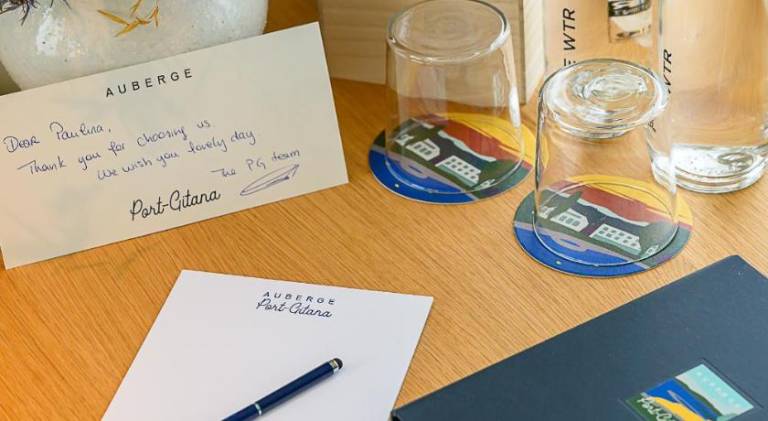 AUBERGE
Dear Paulina,
Thank you for choosing us.
We wish you lovely day
The PG team
Port-Gitana
AUBERGE
Port-Gitana
WTR
WTR
AUBERGE
Port-Gitana